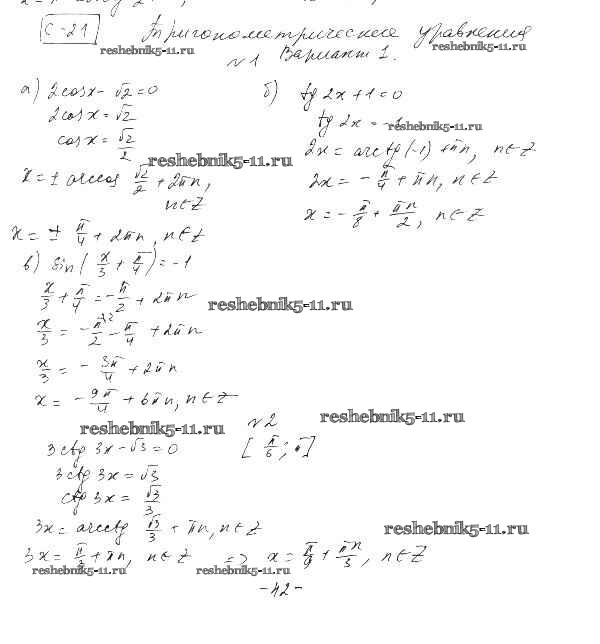 С-21 Тригонометрические уравнения
reshebnik5-11.ru reshebnik5-11.ru
№1 Вариант 1.
а) 2cosx - √2 = 0
2cosx = √2
cosx = √2/2
reshebnik5-11.ru
x = ± arccos √2/2 + 2πn,
n∈Z
x = ± π/4 + 2πn, n∈Z
б) tg 2x + 1 = 0
tg 2x = -1
reshebnik5-11.ru
2x = arctg(-1) + πn, n∈Z
2x = -π/4 + πn, n∈Z
x = -π/8 + πn/2, n∈Z
в) sin(x/3 + π/4) = -1
x/3 + π/4 = -π/2 + 2πn
reshebnik5-11.ru
x/3 = -π/2 - π/4 + 2πn
x/3 = -3π/4 + 2πn
x = -9π/4 + 6πn, n∈Z
reshebnik5-11.ru reshebnik5-11.ru
№2
3ctg 3x - √3 = 0 [π/6;
3ctg 3x = √3
ctg 3x = √3/3
3x = arcctg √3/3 + πn, n∈Z
reshebnik5-11.ru
3x = π/3 + πn, n∈Z => x = π/9 + πn/3, n∈Z
reshebnik5-11.ru reshebnik5-11.ru
-42-